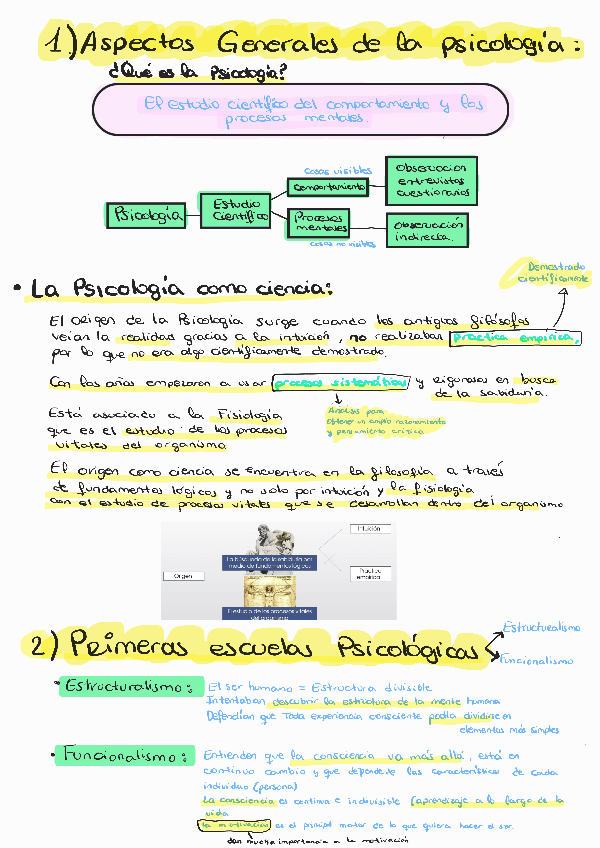 1) Aspectos Generales de la psicología:
¿Qué es la Psicología?
El estudio científico del comportamiento y los
procesos mentales.
Psicología
Estudio
Científico
cosas visibles
comportamiento
Observacion
entrevistas
cuestionarios
Procesos
mentales
cosas no visibles
observación
indirecta.
Demostrado
científicamente
• La Psicología como ciencia:
El origen de la Psicología surge cuando los antiguos filósofos
veían la realidas gracias a la intuición, no realizaban practica empírica,
por lo que no era algo científicamente demostrado.
Con los años empezaron a usar procesos sistemáticos y rigurosos en busca
de la sabiduría.
Análisis para
obtener un amplio razonamiento
y pensamiento crítico
Está asociado a la Fisiología
que es el estudio de los procesos
vitales del organismo
El origen como ciencia se encuentra en la filosofía a través
de fundamentos lógicos y no solo por intuición y la fisiología
con el estudio de procesos vitales que se desarrollan dentro del organismo
Origen
La búsqueda de la sabiduría por
medio de fundamentos lógicos
El estudio de los procesos vitales
del organismo
Intuición
Practica
empírica
2) Primeras escuelas Psicológicas
Estructuralismo
Funcionalismo
• Estructuralismo:
El ser humano = Estructura divisible
Intentaban descubrir la estructura de la mente humana
Defendían que toda experiencia consciente podía dividirse en
elementos más simples
• Funcionalismo:
Entienden que la consciencia va más allá, está en
continuo cambio y que depende de las características de cada
individuo (persona)
La consciencia es continua e indivisible (aprendizaje a lo largo de la
vida
La motivación es el principal motor de lo que quiera hacer el ser.
dan mucha importancia a la motivación